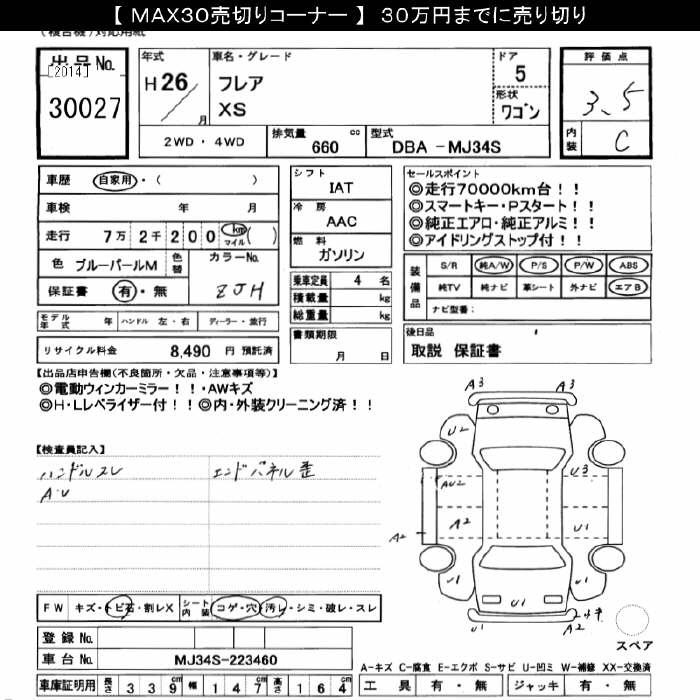 【 MAX30売切りコーナー 】 30万円までに売り切り
(複合機)対応用紙
出品No.
[2014]
30027
年式
H26
月
車名・グレード
フレア
XS
ドア
5
形状
ワゴン
2WD ・ 4WD
排気量
660
cc
型式
DBA - MJ34S
評価点
3.5
内装
C
車歴
自家用・( )
車検 年 月
走行 7万 2千 200 km マイル ( )
色 ブルーパールM
色替
カラーNo.
ZJH
保証書 有・無
モデル年式 年
ハンドル 左・右
ディーラー・並行
リサイクル料金 8,490 円 預託済
シフト
IAT
冷房
AAC
燃料
ガソリン
乗車定員 4 名
積載量 kg
総重量 kg
書類期限
月 日
セールスポイント
◎走行70000km台!!
◎スマートキー・Pスタート!!
◎純正エアロ・純正アルミ!!
◎アイドリングストップ付!!
装備品
S/R 純A/W P/S P/W ABS
純TV 純ナビ 革シート 外ナビ エアB
ナビ型番:
後日品
取説 保証書
【出品店申告欄(不良箇所・欠品・注意事項等)】
◎電動ウィンカーミラー!!・AWキズ
◎H・Lレベライザー付!!◎内・外装クリーニング済!!
【検査員記入】
ハンドルスレ
エンドパネル歪
A・U
A3
A3
U2
U1
U3
AU2
A2
A2
U1
U1
U1
U1
FW キズ・トビ石・割レX
シート内装 コゲ・穴・汚レ・シミ・破レ・スレ
登録No.
車台No. MJ34S-223460
車庫証明用 長さ 339cm 幅 147cm 高さ 164cm
スペア
A-キズ C-腐食 E-エクボ S-サビ U-凹ミ W-補修 XX-交換済
工具 有・無 ジャッキ 有・無